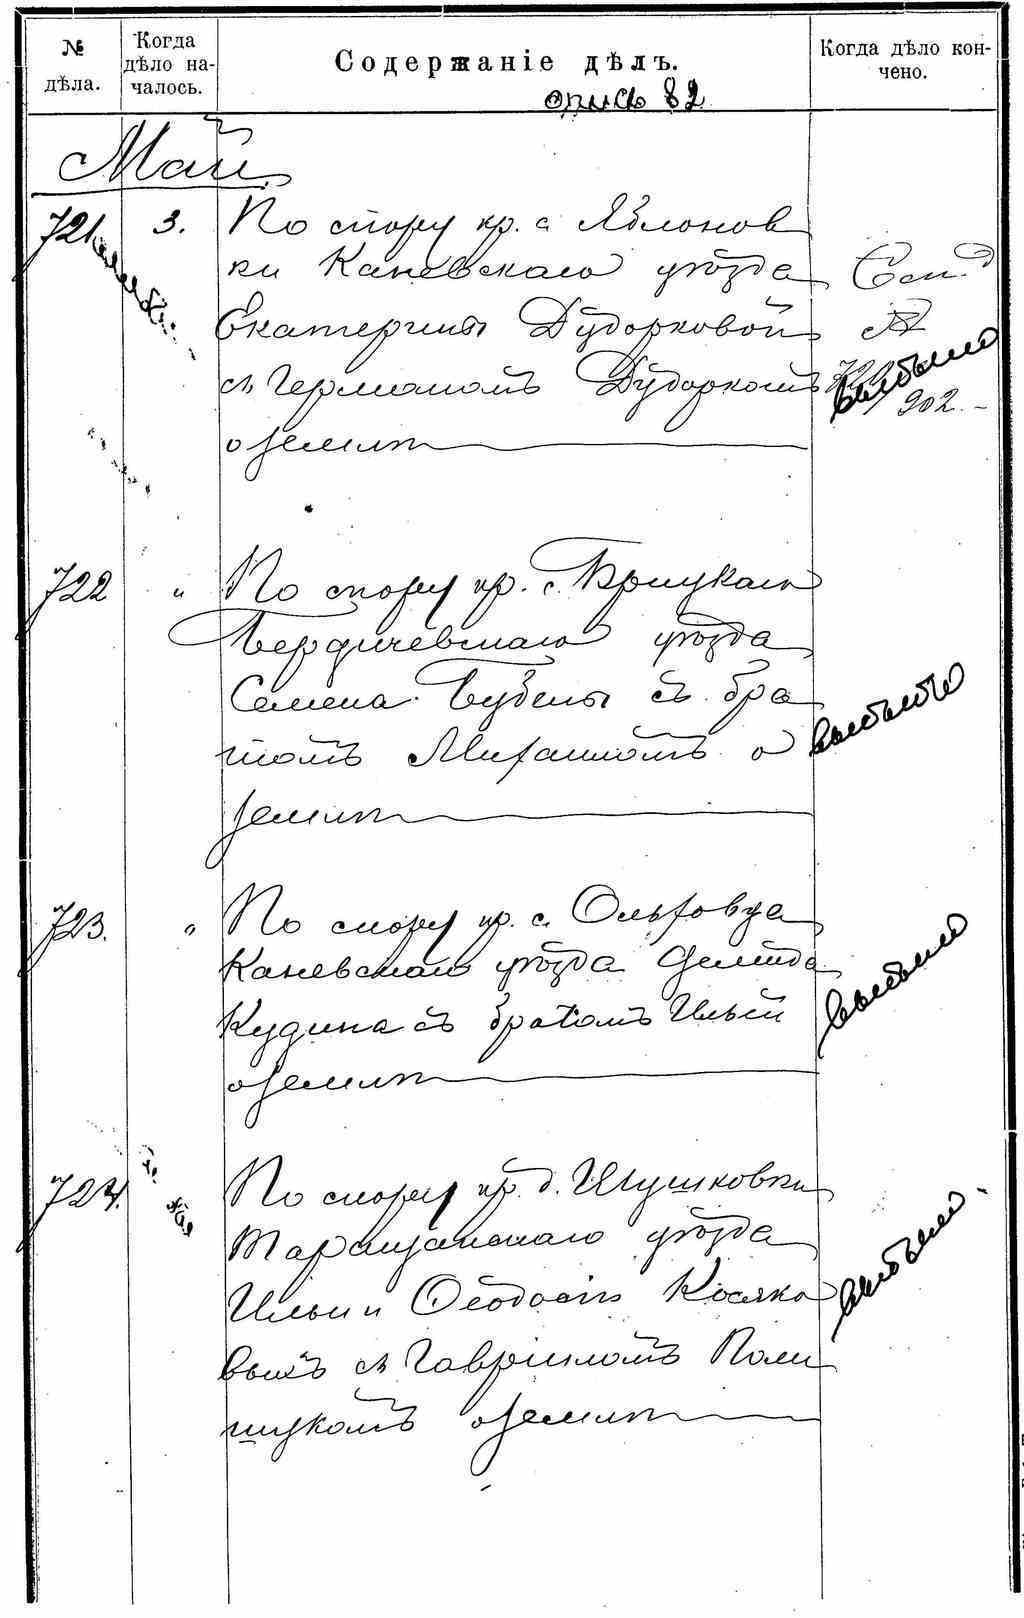 № дѣла.
Когда дѣло на-
чалось.
Содержаніе дѣлъ.
Когда дѣло кон-
чено.
опись 82
Май.
721
3.
По спору кр. с. Яблонов
ки Каневскаго уѣзда
Екатерины Дудорковой
съ Германомъ Дудоркомъ
о землѣ
выбыло
902.
722
"
По спору кр. с.
Бердичевскаго уѣзда
Семена Бубелы съ бра
томъ Михаиломъ о
землѣ
выбыло
723.
"
По спору кр. с. Ольховца
Каневскаго уѣзда Демида
Кудина съ братомъ Ильей
о землѣ
выбыло
724.
По спору кр. д. Шушковки
Таращанскаго уѣзда
Ильи и Ѳеодосія Косяко
выхъ съ Гавриломъ Поли
щукомъ о землѣ
выбыло